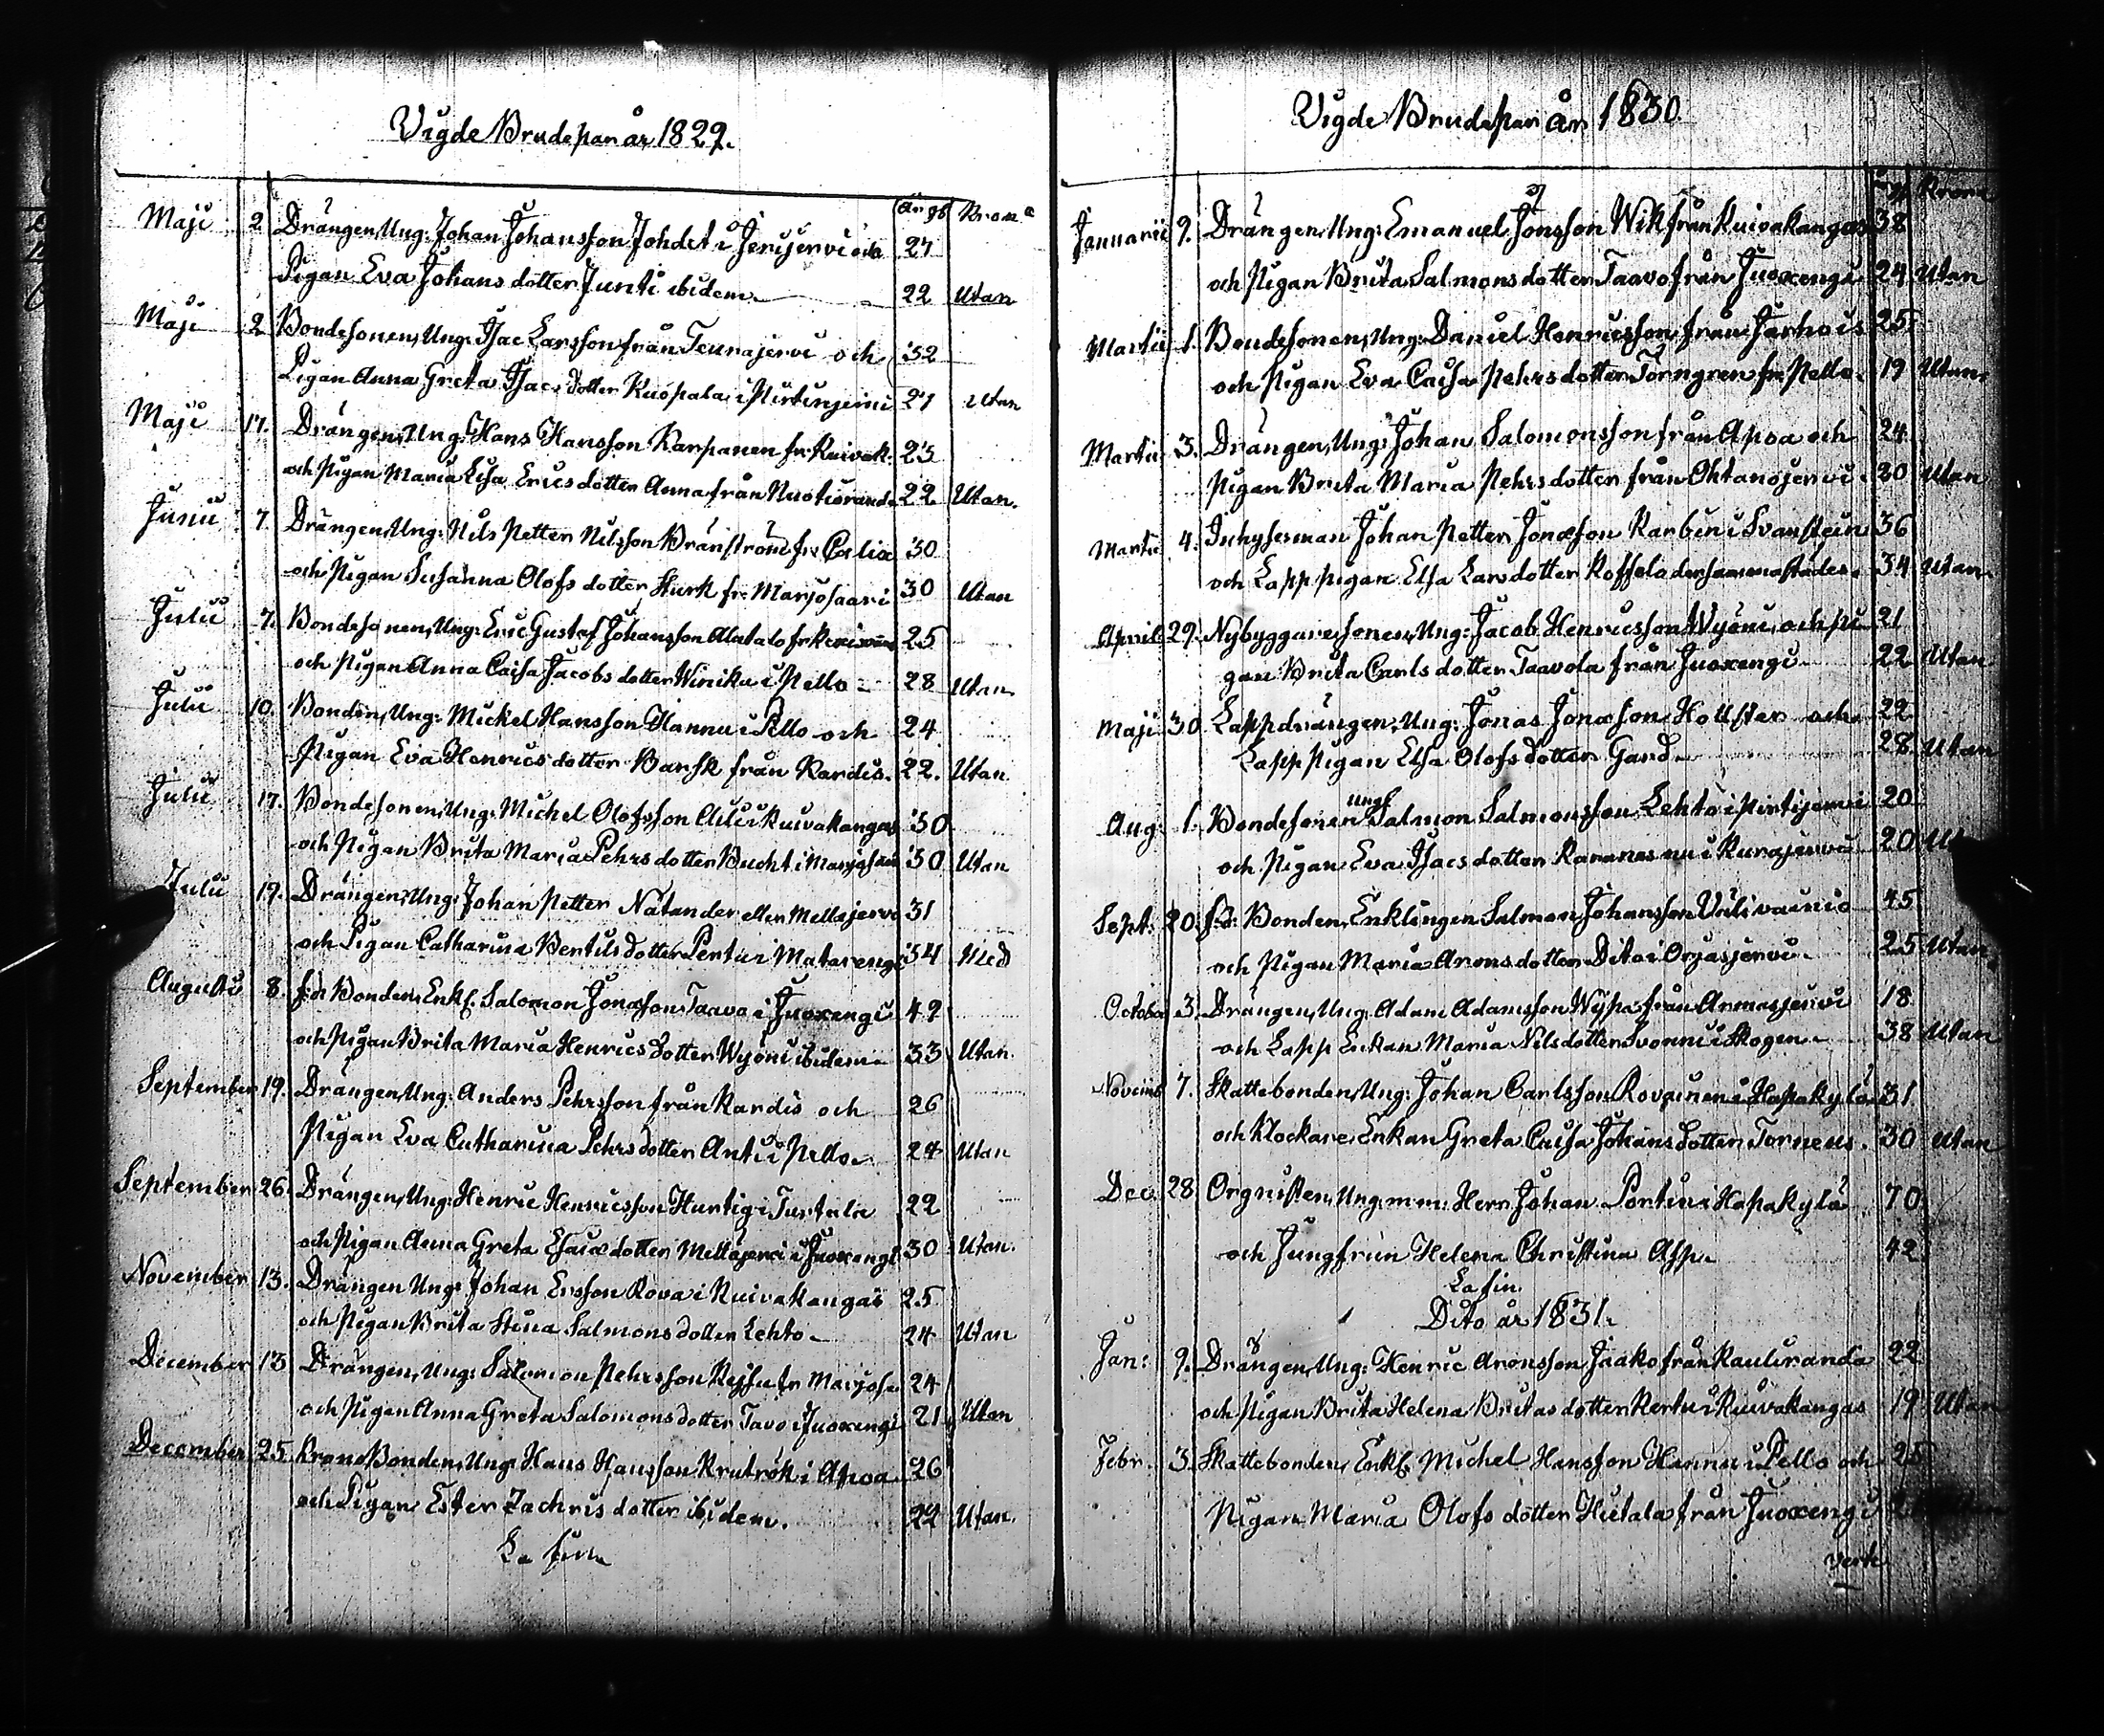 Vigde Brudepar år 1829.
år gl Krona
Maji 2 Drängen, Ung: Johan Johansson Johdet i Jerijervi och 27
Pigan Eva Johans dotter Junti ibidem 22 Utan
Maji 2 Bondesonen, Ung: Isac Larsson från Teurajervi och 32
Pigan Anna Greta Isacs dotter Kuopala i Pirtinjemi 27 Utan
Maji 17. Drängen, Ung: Hans Hansson Karpanen fr. Kuivak. 23
och Pigan Maria Lisa Erics dotter Anna från Nuotioranda 22 Utan.
Junii 7. Drängen, Ung: Nils Petter Nilsson Bränström fr. Calix 30
och Pigan Susanna Olofs dotter Sturk fr. Marjosaari 30 Utan
Julii 7. Bondesonen, Ung: Eric Gustaf Johansson Alatalo fr. 25
och Pigan Anna Caisa Jacobs dotter Winika i Pello 28 Utan
Julii 10. Bonden, Ung: Mickel Hansson Hannu i Pello och 24
Pigan Eva Henrics dotter Barsk från Kardis. 22. Utan
Julii 17. Bondesonen, Ung: Michel Olofsson Alii i Kuivakangas 30
och Pigan Brita Maria Pehrs dotter Bucht i Marjosaari 30 Utan
Julii 19. Drängen, Ung: Johan Petter Natander eller Mellajervi 31
och Pigan Catharina Bertils dotter Pertu i Matarengi 34 Med
Augusti 8. f:d Bonden, Enkl. Salomon Jonasson Taavo i Juoxengi 49
och Pigan Brita Maria Henrics dotter Wyöni ibidem 33 Utan.
September 19. Drängen, Ung: Anders Pehrsson från Kardis och 26
Pigan Eva Catharina Pehrs dotter Anti i Pello 24 Utan
September 26. Drängen, Ung: Henric Henricsson Hurtig i Turtula 22
och Pigan Anna Greta Esaiæ dotter Mellajervi i Juoxengi 30 Utan.
November 13. Drängen Ung: Johan Ersson Rova i Kuivakangas 25
och Pigan Brita Stina Salmons dotter Lehto 24 Utan
December 13 Drängen, Ung: Salomon Pehrsson fr. Marjosa 24
och Pigan Anna Greta Salomons dotter Tavo i Juoxengi 21 Utan
December 25 Krono Bonden, Ung: Hans Hansson Krutrök i Apoa 26
och Pigan Ester Zachris dotter ibidem. 22 Utan.
La fin
Vigde Brudepar år 1830.
Krona
Januarii 9. Drängen, Ung: Emanuel Jonsson Wik från Kuivakangas 38
och Pigan Brita Salmons dotter Taavo från Juoxengi 24 Utan
Martii 1. Bondesonen, Ung: Daniel Henricsson från Jarhois 25
och Pigan Eva Caisa Pehrs dotter Törngren fr. Pello. 19 Utan.
Martii 3. Drängen, Ung: Johan Salomonsson från Apoa och 24
Pigan Brita Maria Pehrs dotter från Ohtanajervi 30 Utan
Martii 4. Inhyseman Johan Petter Jonæson Karbin i Svanstein 36
och Lapp pigan Elsa Lars dotter Koffela dersammastädes. 34 Utan.
April 29. Nybyggaresonen, Ung: Jacob Henricsson Wyöni, och Pi- 21
gan Brita Carls dotter Taavola från Juoxengi 22 Utan
Maji 30. Lappdrängen, Ung: Jonas Jonæson Hollsten och 22
Lapp Pigan Elsa Olofs dotter Gard 28 Utan
Aug. 1. Bondesonen Ungk Salmon Salmonsson Lehto i Pirtijemi 20
och Pigan Eva Isacs dotter i Kurajervi 20 Ut
Sept. 20. f.d. Bonden, Enklingen Salmon Johansson Välivainio 45
och Pigan Maria Arons dotter Dito i Orjasjervi 25 Utan.
October 3. Drängen, Ung: Adam Adamsson Wypa från Armasjervi 18
och Lapp Enkan Maria Nils dotter Svonni i Skogen 38 Utan
Novemb 7. Skattebonden, Ung: Johan Carlsson Rovainen i Hapakylä 31
och Klockare Enkan Greta Caisa Johans dotter Torneus. 30 Utan
Dec. 28. Orgnisten, Ung. m.m. Herr Johan Portin i Hapakylä 70
och Jungfrun Helena Christina Asp 42
La fin.
Dito år 1831.
Jan: 9. Drängen, Ung: Henric Aronsson Jaako från Kauliranda 22
och Pigan Brita Helena Britas dotter Kertu i Kuivakangas 19 Utan
Febr. 3. Skattebonden, Enkl. Michel Hansson Hannu i Pello och 25
Pigan Maria Olofs dotter Hietala från Juoxengi
vert